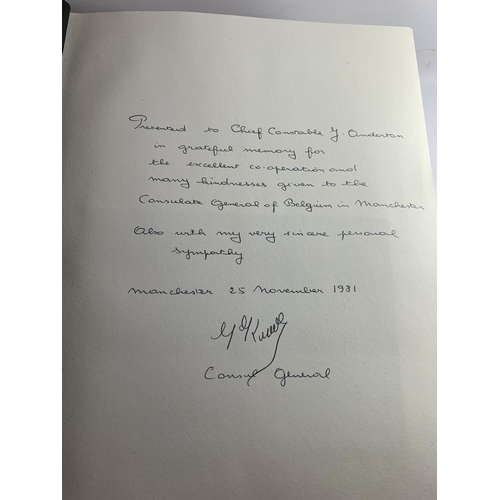 Presented to Chief Constable J. Anderton
in grateful memory for
the excellent co-operation and
many kindnesses given to the
Consulate General of Belgium in Manchester
Also with my very sincere personal
sympathy
Manchester 25 November 1981
Consul General